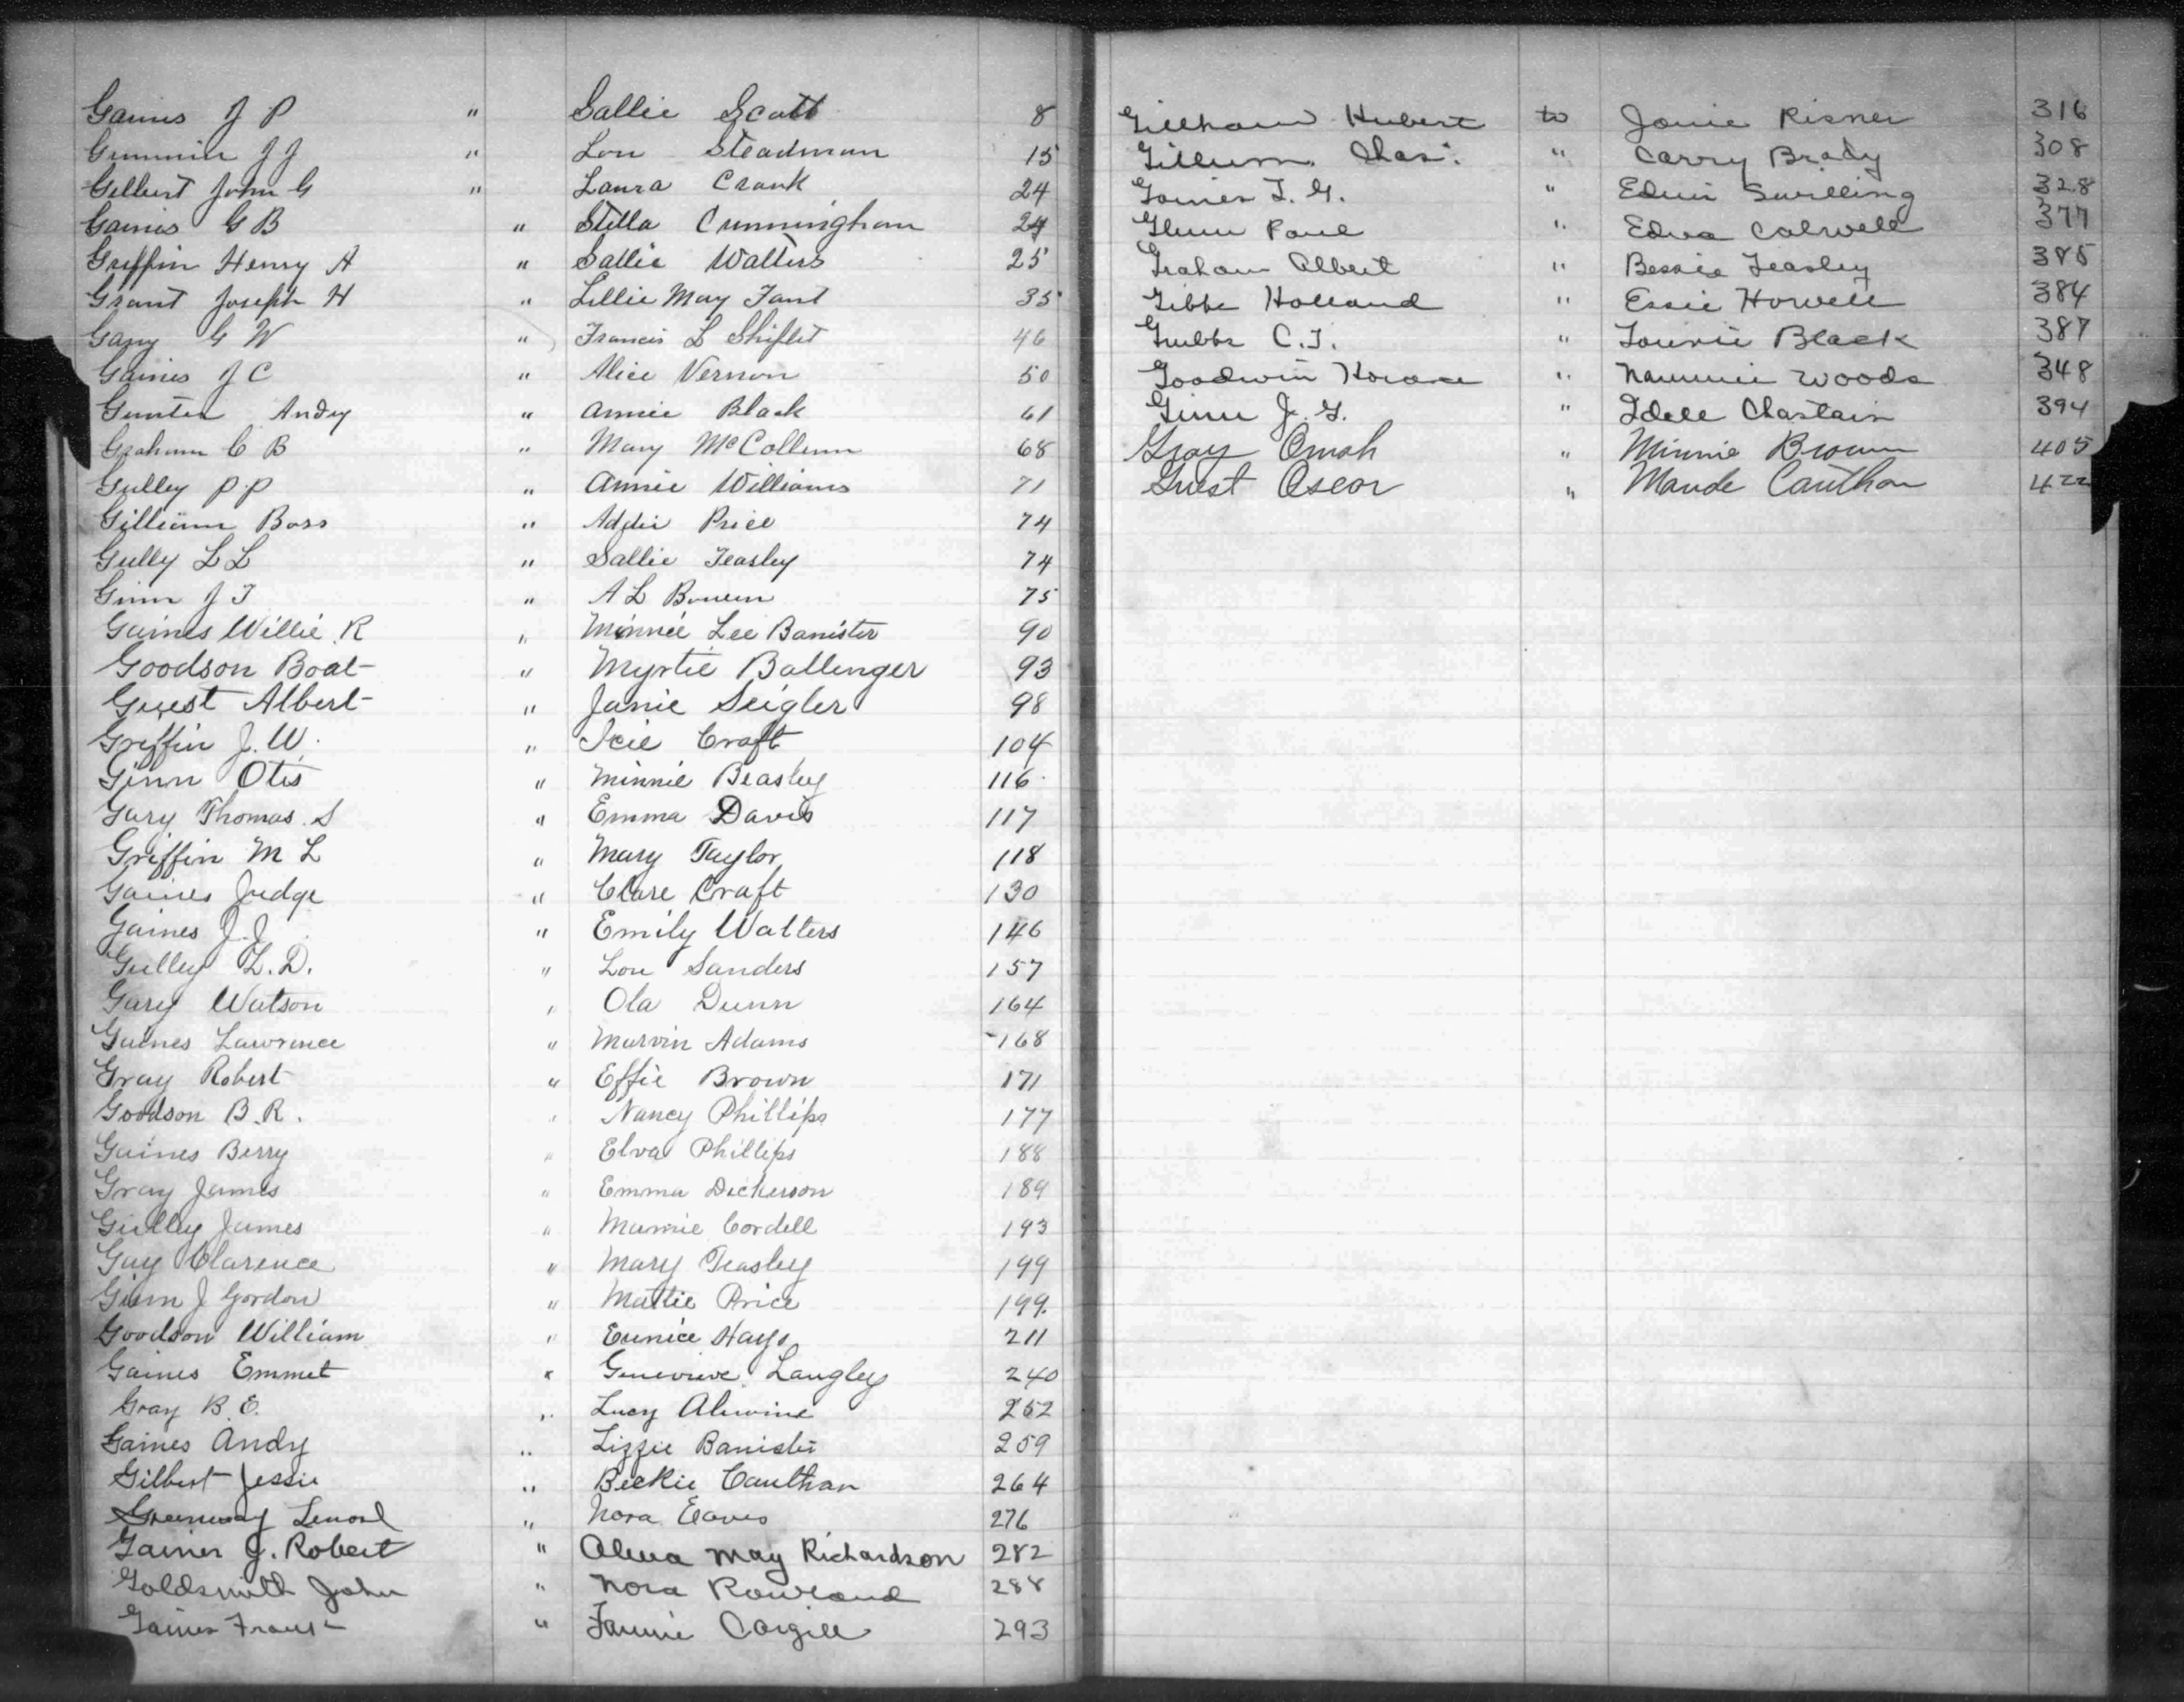 Gaines J P " Sallie Scott 8
Gunnin J J " Lou Steadman 15
Gilbert John G " Laura Crank 24
Gaines G B " Stella Cunningham 24
Griffin Henry A " Sallie Walters 25
Grant Joseph H " Lillie May Fant 35
Gary G W " Francis L Shiflet 46
Gaines J C " Alice Vernon 50
Gunter Andy " Annie Black 61
Graham C B " Mary McCollum 68
Gulley P.P " Annie Williams 71
Gilliam Boss " Addie Price 74
Gully L L " Sallie Teasley 74
Ginn J T " A L Bowen 75
Gaines Willie R " Minnie Lee Banister 90
Goodson Boat " Myrtie Ballenger 93
Guest Albert " Janie Seigler 98
Griffin J. W. " Icie Craft 104
Ginn Otis " Minnie Beasley 116
Gary Thomas S " Emma Davis 117
Griffin M L " Mary Taylor 118
Gaines Judge " Clare Craft 130
Gaines J. J. " Emily Walters 146
Gulley L. D. " Lou Sanders 157
Gary Watson " Ola Dunn 164
Gaines Lawrence " Marvin Adams 168
Gray Robert " Effie Brown 171
Goodson B. R. " Nancy Phillips 177
Gaines Berry " Elva Phillips 188
Gray James " Emma Dickerson 189
Gulley James " Mamie Cordell 193
Gay Clarence " Mary Teasley 199
Ginn J Gordon " Mattie Price 199.
Goodson William " Eunice Hays 211
Gaines Emmet " Genevieve Langley 240
Gray B. E. " Lucy Alewine 252
Gaines Andy " Lizzie Banister 259
Gilbert Jessie " Beckie Cauthan 264
Greenway " Nora Eaves 276
Gainer J. Robert " Alma May Richardson 282
Goldsmith John " Nora Rowland 288
Gaines Frank " Fannie Cargill 293
Gillham Hubert to Janie Risner 316
Gillum Chas. " Carry Brady 308
Gaines T. G. " Swilling 328
Glenn Paul " Edna Calwell 377
Graham Albert " Bessie Teasley 385
Gibbs Holland " Essie Howell 384
Grubbs C. T. " Black 387
Goodwin Horace " Nannie Woods 348
Ginn J. G. " Idell Chastain 394
Gray Omah " Minnie Brown 405
Guest Oscar " Maude Cauthan 422